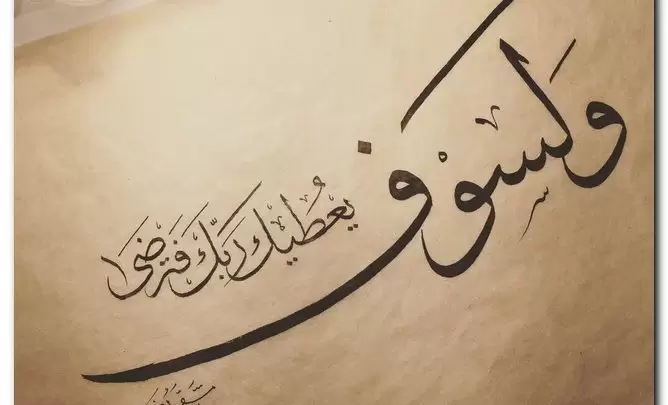 وَلَسَوْفَ
يُعْطِيكَ رَبُّكَ فَتَرْضَى